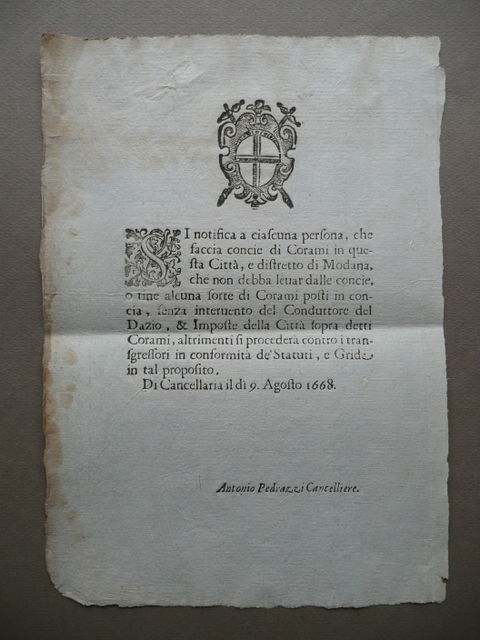 SI notifica a ciascuna persona, che
faccia concie di Corami in que-
sta Città, e distretto di Modana,
che non debba leuar dalle concie,
o tine alcuna sorte di Corami posti in con-
cia, senza interuento del Conduttore del
Dazio, & Imposte della Città sopra detti
Corami, altrimenti si procederà contro i tran-
sgressori in conformità de' Statuti, e Gride
in tal proposito.
Di Cancellaria il dì 9. Agosto 1668.
Antonio Pedrazzi Cancelliere.